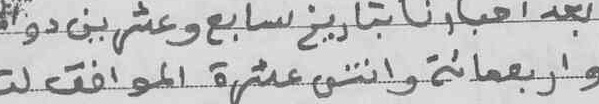 بعد اخبارنا بتاريخ لسابع وعشرين ذو
واربعمائة واثنتى عشرة الموافق لت